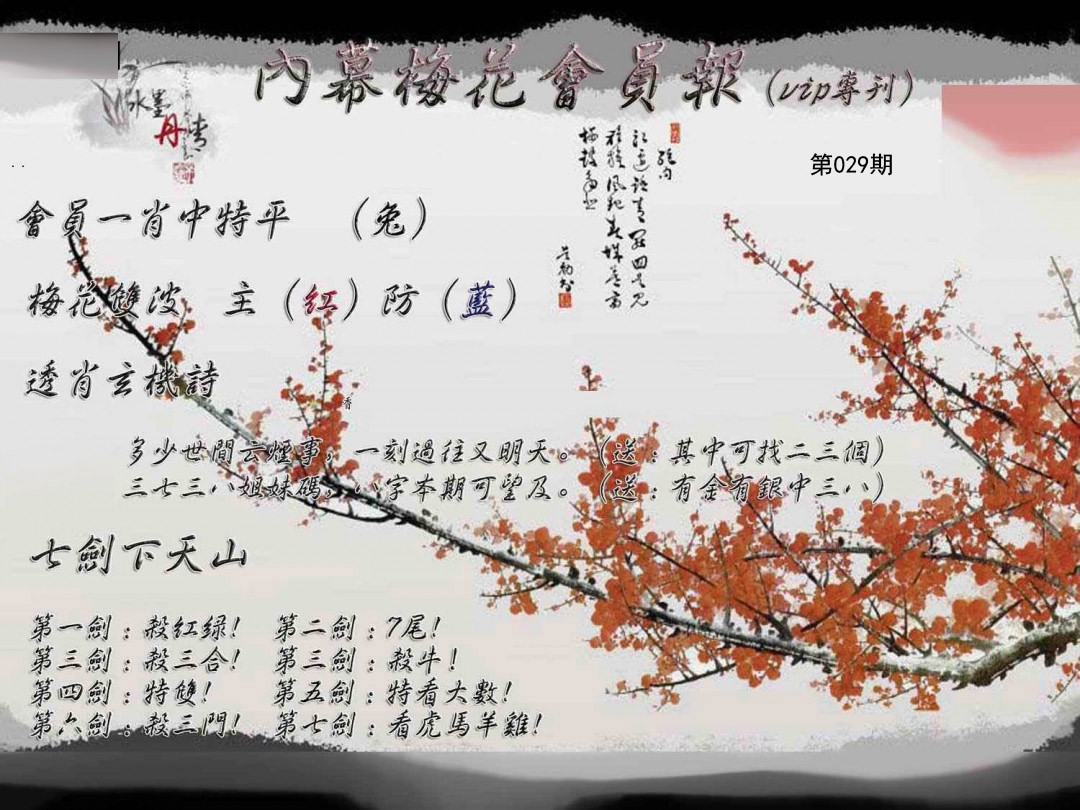 內幕梅花會員報(vip專刊)
水墨
丹青
第029期
會員一肖中特平 (兔)
梅花雙波 主(紅)防(藍)
透肖玄機詩
香
多少世間云煙事,一刻過往又明天。(送:其中可找二三個)
三七三八姐妹碼,八字本期可望及。(送:有金有銀中三八)
七劍下天山
第一劍:殺紅绿! 第二劍:7尾!
第三劍:殺三合! 第三劍:殺牛!
第四劍:特雙! 第五劍:特看大數!
第六劍:殺三門! 第七劍:看虎馬羊雞!